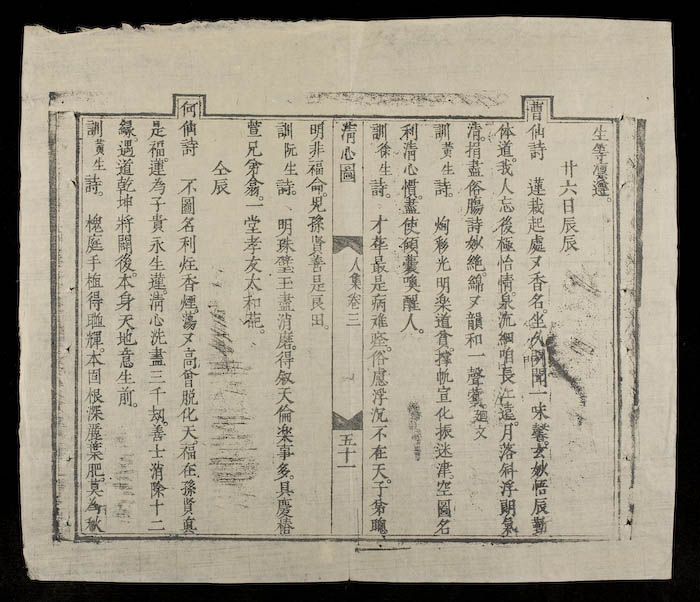 生等凛遵。
廿六日辰辰
曹仙詩 蓮栽起處又香名。坐久 聞一味馨。玄妙悟辰
体道。我人忘後極怡情。泉流細咱長江遠。月落斜浮朗氣
清。捐盡俗腸詩妙絶。綿又韻和一聲 廻文
訓黃生詩。 炯移光明楽道貧。撑帆宣化振迷津。空圖名
利清心慣。盡使傾囊喚醒人。
訓徐生詩。 才 最是病难 。俗慮浮沉不在天。子弟聰
清心圖 人集卷三 五十二
明非福命。児孫賢善是良田。
訓阮生詩。 明珠璧玉盡消磨。得叙天倫楽事多。具慶椿
萱兄弟翕。一堂孝友太和 。
仝辰
何仙詩 不圖名利炷香煙。蕩又高曾脱化天。福在孫賢真
是福。蓮為子貴永生蓮。清心洗盡三千刼。善士消除十二
緣。遇道乾坤将闢後。本身天地意生前。
訓黃生詩。 槐庭手植得 輝。本固根深 葉肥。莫為秋